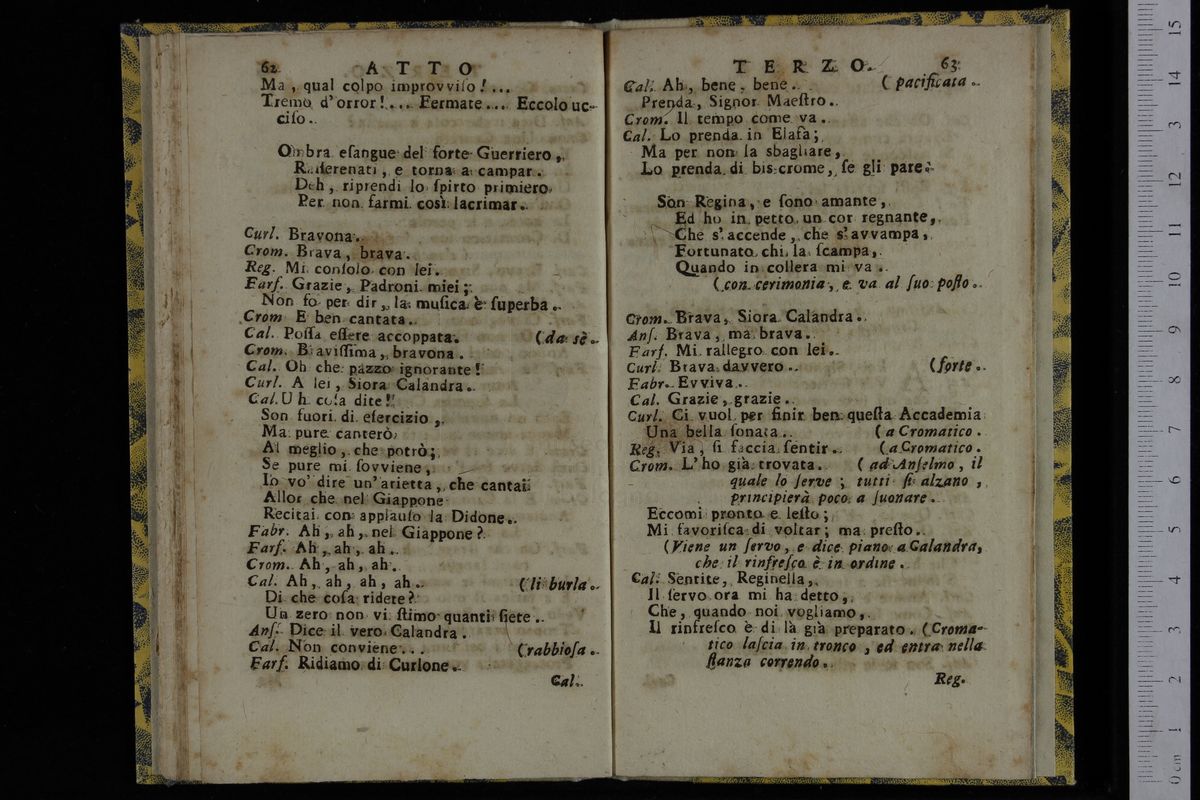 62 ATTO
Ma, qual colpo improvviſo!...
Tremo d'orror!.... Fermate... Eccolo uc-
ciſo.
Ombra eſangue del forte Guerriero,
Raſſerenati, e torna a campar.
Deh, riprendi lo ſpirto primiero
Per non farmi così lacrimar.
Curl. Bravona.
Crom. Brava, brava.
Reg. Mi conſolo con lei.
Farſ. Grazie, Padroni miei;
Non fo per dir, la muſica è ſuperba.
Crom E ben cantata.
Cal. Poſſa eſſere accoppata. (da sè.
Crom. Braviſſima, bravona.
Cal. Oh che pazzo ignorante!
Curl. A lei, Siora Calandra.
Cal. Uh coſa dite!
Son fuori di eſercizio,
Ma pure canterò
Al meglio, che potrò;
Se pure mi ſovviene,
Io vo' dire un' arietta, che cantai
Allor che nel Giappone
Recitai con applauſo la Didone.
Fabr. Ah, ah, nel Giappone?
Farſ. Ah, ah, ah.
Crom. Ah, ah, ah.
Cal. Ah, ah, ah, ah. (li burla.
Di che coſa ridete?
Un zero non vi ſtimo quanti ſiete.
Anſ. Dice il vero Calandra.
Cal. Non conviene... (rabbioſa.
Farſ. Ridiamo di Curlone.
Cal.
TERZO. 63
Cal. Ah, bene, bene. (pacificata.
Prenda, Signor Maeſtro.
Crom. Il tempo come va.
Cal. Lo prenda in Elafa;
Ma per non la sbagliare,
Lo prenda di biscrome, ſe gli pare.
Son Regina, e ſono amante,
Ed ho in petto un cor regnante,
Che s'accende, che s'avvampa,
Fortunato chi la ſcampa,
Quando in collera mi va.
(con cerimonia, e va al ſuo poſto.
Crom. Brava, Siora Calandra.
Anſ. Brava, ma brava.
Farſ. Mi rallegro con lei.
Curl. Brava davvero. (forte.
Fabr. Evviva.
Cal. Grazie, grazie.
Curl. Ci vuol per finir ben queſta Accademia
Una bella ſonata. (a Cromatico.
Reg. Via, ſi faccia ſentir. (a Cromatico.
Crom. L'ho già trovata. (ad Anſelmo, il
quale lo ſerve; tutti ſi alzano,
principierà poco a ſuonare.
Eccomi pronto e leſto;
Mi favoriſca di voltar; ma preſto.
(Viene un ſervo, e dice piano a Calandra,
che il rinfreſco è in ordine.
Cal. Sentite, Reginella,
Il ſervo ora mi ha detto,
Che, quando noi vogliamo,
Il rinfreſco è di là già preparato. (Croma-
tico laſcia in tronco, ed entra nella
ſtanza correndo.
Reg.
0 cm 1 2 3 4 5 6 7 8 9 10 11 12 13 14 15